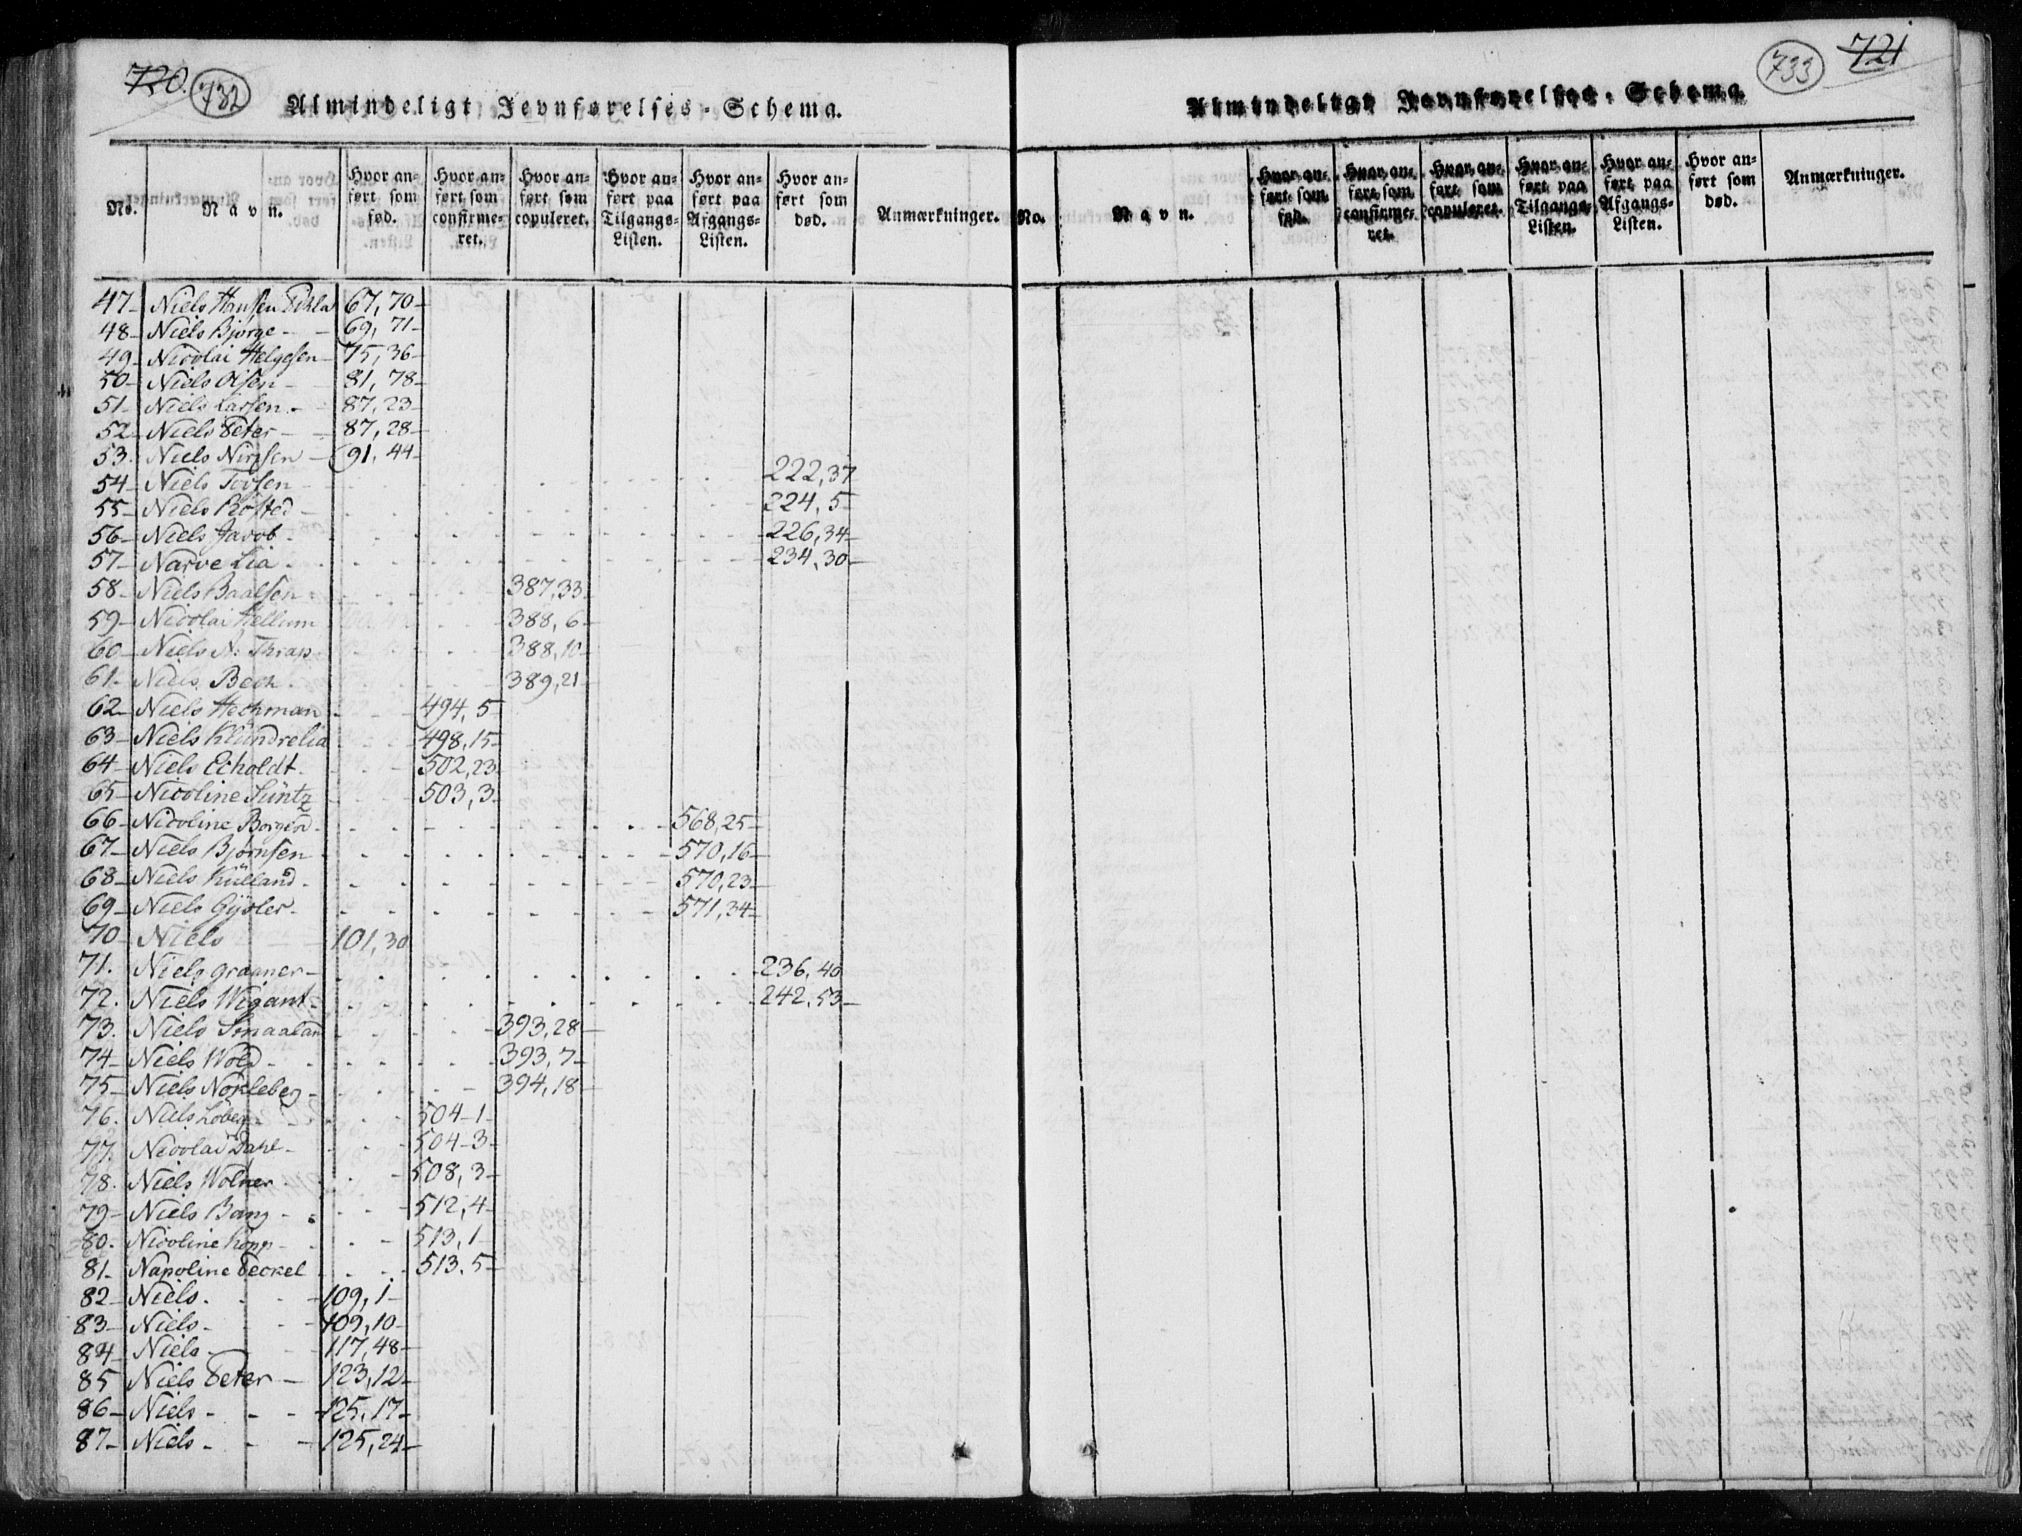 720. 732
Almindeligt Jevnførelses-Schema.
No. Navn. Hvor anført som fød. Hvor anført som confirmeret. Hvor anført som copuleret. Hvor anført paa Tilgangs-Listen. Hvor anført paa Afgangs-Listen. Hvor anført som død. Anmærkninger.
47- Niels Hansen 67,70-
48- Niels Bjørge - - 69,71-
49- Nicolai Helgesen- 75,36-
50- Niels Olsen - 81,78-
51- Niels Larsen - 87,23-
52- Niels Peter - 87,28-
53. Niels Nirssen - 91,44-
54- Niels Tovsen - 222,37
55- Niels Rosted - 224,5-
56- Niels Jacob - 226,34-
57- Narve Lia - 234,30-
58- Niels Baalsen - 387,33.
59- Nicolai Hellum 388,6-
60- Niels N. Thrap 388,10-
61- Niels Bech - 389,21-
62- Niels Hechman 494,5-
63- Niels Klundrelia 498,15-
64- Niels Echoldt - 502,23-
65- Nicoline Süntz 503,3-
66- Nicoline Borgen - 568,25-
67- Niels Bjørnsen 570,16-
68- Niels Külland - 570,23-
69- Niels Gysler - 571,34-
70- Niels 101,30
71. Niels Graaner - 236,40
72. Niels Wigant - 242,53-
73. Niels Smaalan 393,28-
74- Niels Wold - 393,7-
75- Niels Nøkleberg - 394,18-
76. Niels Løberg 504-1-
77. Nicolai Dahl - 504-3-
78. Niels Wolner - 508,3-
79- Niels Bang - 512,4-
80. Nicoline Kopp - 513,1-
81- Napoline Peckel 513.5-
82- Niels - 109,1-
83- Niels - 109,10-
84- Niels - 117,48-
85 Niels Peter - 123,12-
86- Niels - - - 125,17-
87- Niels - - - 125,24-
733 721
Almindeligt Jevnførelses-Schema.
No. Navn. Hvor anført som fød. Hvor anført som confirmeret. Hvor anført som copuleret. Hvor anført paa Tilgangs-Listen. Hvor anført paa Afgangs-Listen. Hvor anført som død. Anmærkninger.